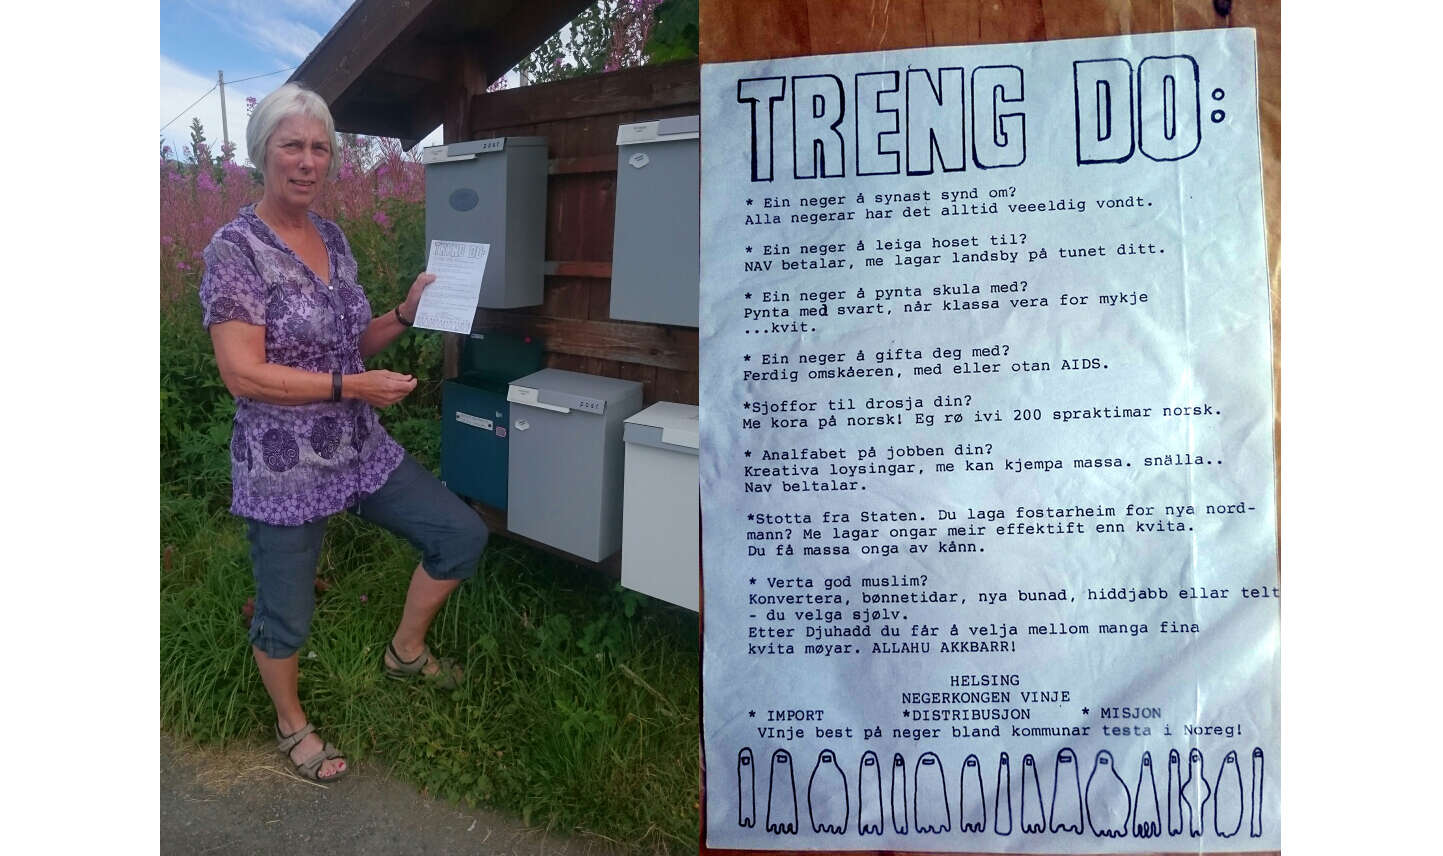 post
TRENG DO:
post
TRENG DO:
* Ein neger å synast synd om?
Alla negerar har det alltid veeeldig vondt.
* Ein neger å leiga hoset til?
NAV betalar, me lagar landsby på tunet ditt.
* Ein neger å pynta skula med?
Pynta med svart, når klassa vera for mykje
...kvit.
* Ein neger å gifta deg med?
Ferdig omskåeren, med eller otan AIDS.
*Sjoffor til drosja din?
Me kora på norsk! Eg rø ivi 200 spraktimar norsk.
* Analfabet på jobben din?
Kreativa loysingar, me kan kjempa massa. snälla..
Nav beltalar.
*Stotta fra Staten. Du laga fostarheim for nya nord-
mann? Me lagar ongar meir effektift enn kvita.
Du få massa onga av kånn.
* Verta god muslim?
Konvertera, bønnetidar, nya bunad, hiddjabb ellar telt
- du velga sjølv.
Etter Djuhadd du får å velja mellom manga fina
kvita møyar. ALLAHU AKKBARR!
HELSING
NEGERKONGEN VINJE
* IMPORT *DISTRIBUSJON * MISJON
VInje best på neger bland kommunar testa i Noreg!